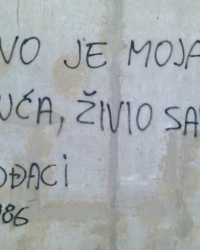 VO JE MOJA
UĆA, ŽIVIO SA
OĐACI
986